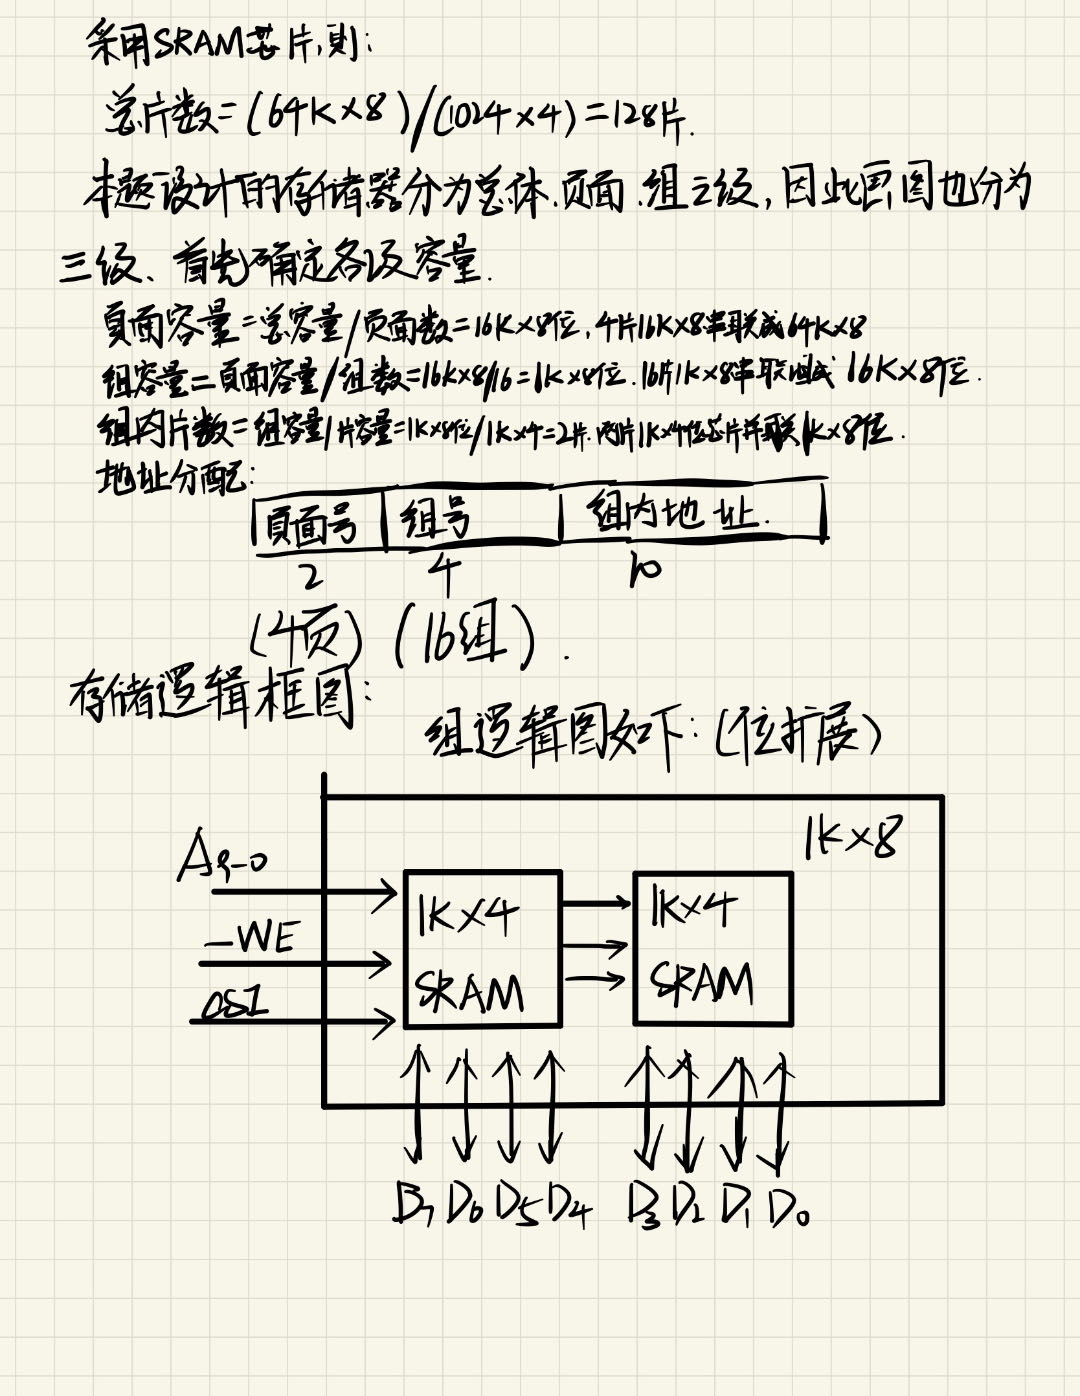 采用SRAM芯片,则:
总片数=(64K×8)/(1024×4)=128片.
本题设计的存储器分为总体.页面.组三级,因此画图也分为
三级、首先确定各级容量.
頁面容量=总容量/页面数=16K×8位,4片16K×8串联成64K×8
组容量=頁面容量/组数=16K×8/16=1K×8位.16片1K×8串联组成16K×8位.
组内片数=组容量/片容量=1K×8位/1K×4=2片.两片1K×4位芯片并联1K×8位.
地址分配:
頁面号 组号 组内地址.
2 4 10
(4页) (16组).
存储逻辑框图:
组逻辑图如下:(位扩展)
1K×8
A9-0
1K×4 1K×4
-WE
SRAM SRAM
D7 D6 D5 D4 D3 D2 D1 D0